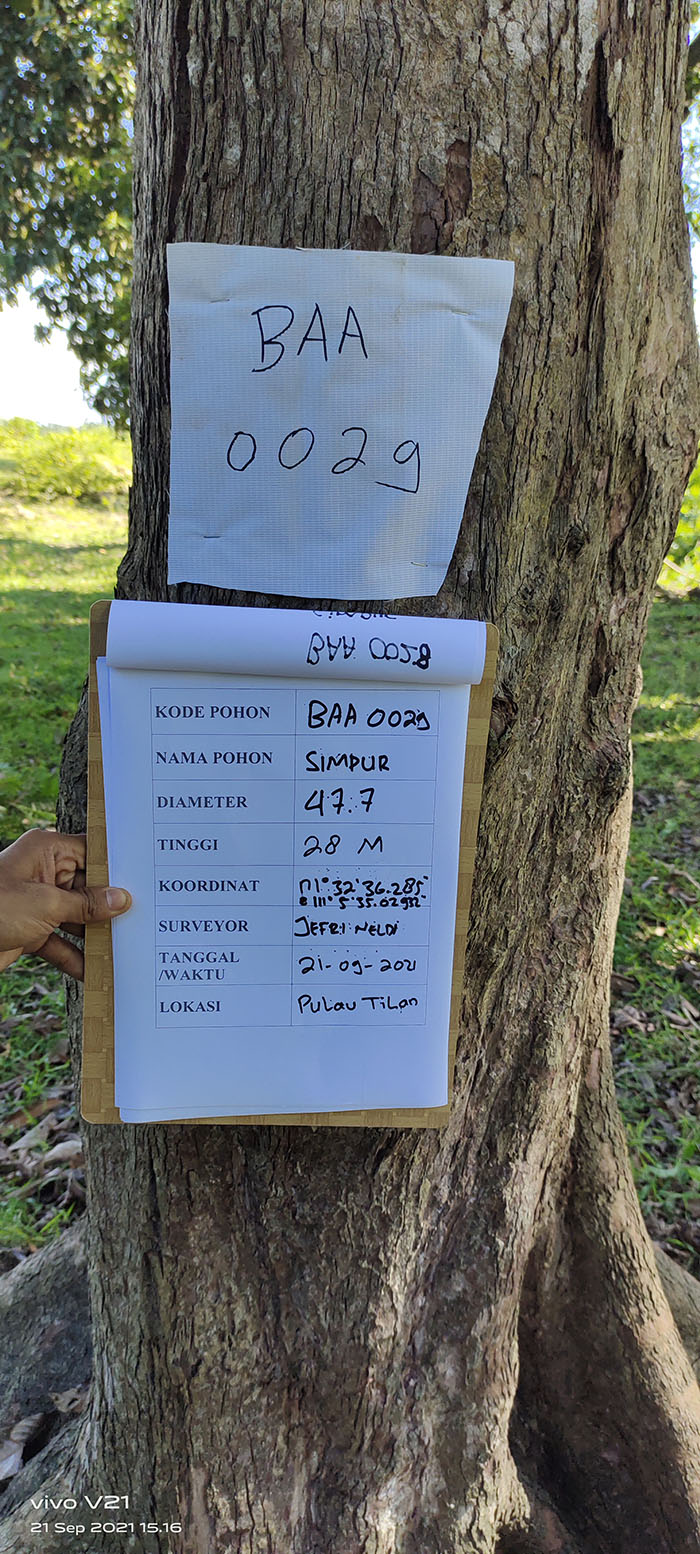 BAA
0029
BAA 0028
KODE POHON BAA 0029
NAMA POHON SIMPUR
DIAMETER 47.7
TINGGI 28 M
KOORDINAT N 1° 32' 36.285"
E 111° 5' 35.02932"
SURVEYOR JEFRI NELDI
TANGGAL
/WAKTU 21-09-2021
LOKASI PULAU TILAN
vivo V21
21 Sep 2021 15.16